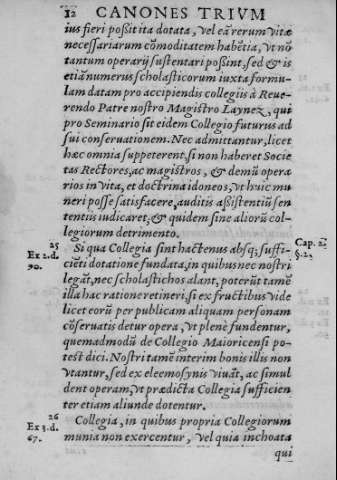 12 CANONES TRIVM
ius fieri poßit ita dotata, vel eã rerum vitæ
necessariarum cõmoditatem habẽtia, vt nõ
tantum operarij sustentari poßint, sed & is
etiã numerus scholasticorum iuxta formu-
lam datam pro accipiendis collegiis à Reue-
rendo Patre nostro Magistro Laynez, qui
pro Seminario sit eidem Collegio futurus ad
sui conseruationem. Nec admittantur, licet
hæc omnia suppeterent, si non haberet Socie
tas Rectores, ac magistros, & demũ opera
rios in vita, et doctrina idoneos, vt huic mu
neri posse satisfacere, auditis aßistentiũ sen
tentiis iudicaret; & quidem sine aliorũ col-
legiorum detrimento.
25
Ex 2. d.
90.
Si qua Collegia sint hactenus absq; suffi-
ciẽti dotatione fundata, in quibus nec nostri
legãt, nec scholastichos alant, poterũt tamẽ
illa hac ratione retineri, si ex fructibus vide
licet eorũ per publicam aliquam personam
cõseruatis detur opera, vt plenè fundentur,
quemadmodũ de Collegio Maioricensi po-
test dici. Nostri tamẽ interim bonis illis non
vtantur, sed ex eleemosynis viuãt, ac simul
dent operam, vt prædicta Collegia sufficien
ter etiam aliunde dotentur.
Cap. 2
§. 2
26
Ex 3. d.
67.
Collegia, in quibus propria Collegiorum
munia non exercentur, vel quia inchoata
qui